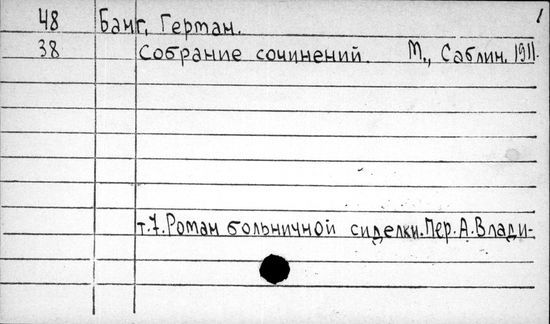 48 Банг, Герман. 1
38 Собрание сочинений. М., Саблин, 1911.
т.7. Роман больничной сиделки. Пер. А. Влади-